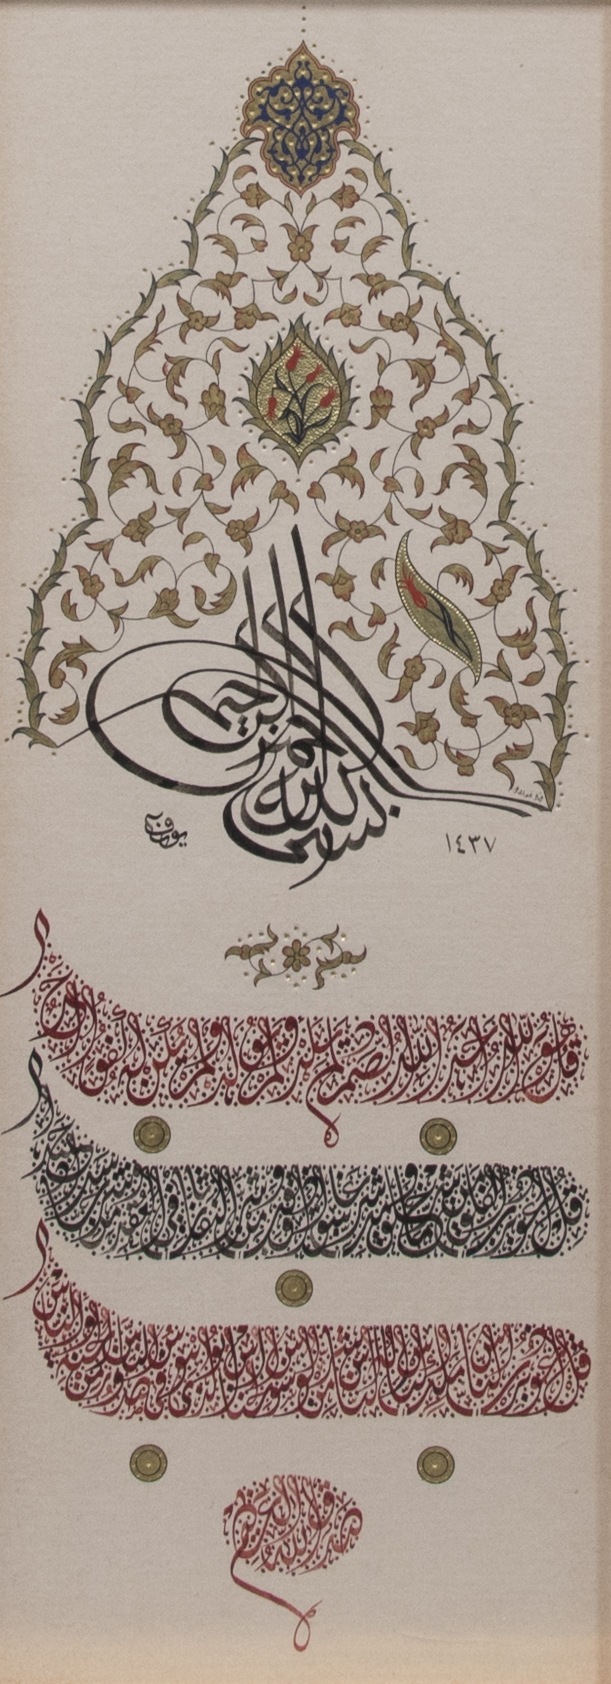 بسم الله الرحمن الرحيم
١٤٣٧
قل هو الله أحد الله الصمد لم يلد ولم يولد ولم يكن له كفوا أحد
قل أعوذ برب الفلق من شر ما خلق ومن شر غاسق إذا وقب ومن شر النفاثات في العقد ومن شر حاسد إذا حسد
قل أعوذ برب الناس ملك الناس إله الناس من شر الوسواس الخناس الذي يوسوس في صدور الناس من الجنة والناس
صدق الله العظيم